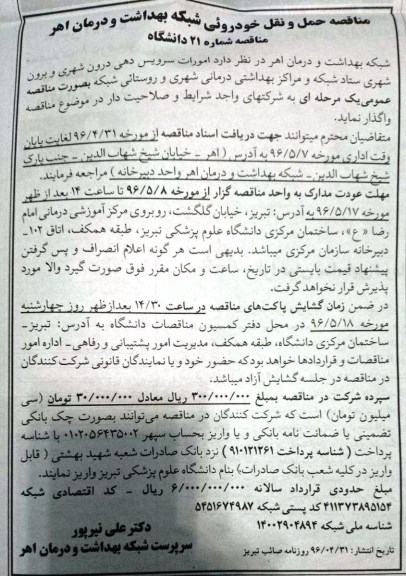 مناقصه حمل و نقل خودروئی شبکه بهداشت و درمان اهر
مناقصه شماره ۲۱ دانشگاه
شبکه بهداشت و درمان اهر در نظر دارد امورات سرویس دهی درون شهری و برون
شهری ستاد شبکه و مراکز بهداشتی درمانی شهری و روستائی شبکه بصورت مناقصه
عمومی یک مرحله ای به شرکتهای واجد شرایط و صلاحیت دار در موضوع مناقصه
واگذار نماید.
متقاضیان محترم میتوانند جهت دریافت اسناد مناقصه از مورخه ۹۶/۴/۳۱ لغایت پایان
وقت اداری مورخه ۹۶/۵/۷ به آدرس ( اهر - خیابان شیخ شهاب الدین - جنب پارک
شیخ شهاب الدین - شبکه بهداشت و درمان اهر واحد دبیرخانه ) مراجعه فرمایند.
مهلت عودت مدارک به واحد مناقصه گزار از مورخه ۹۶/۵/۸ تا ساعت ۱۴ بعد از ظهر
مورخه ۹۶/۵/۱۷ به آدرس: تبریز، خیابان گلگشت، روبروی مرکز آموزشی درمانی امام
رضا «ع»، ساختمان مرکزی دانشگاه علوم پزشکی تبریز، طبقه همکف، اتاق ۱۰۲-
دبیرخانه سازمان مرکزی میباشد. بدیهی است هر گونه اعلام انصراف و پس گرفتن
پیشنهاد قیمت بایستی در تاریخ، ساعت و مکان مقرر فوق صورت گیرد والا مورد
پذیرش قرار نخواهد گرفت.
در ضمن زمان گشایش پاکت‌های مناقصه در ساعت ۱۴/۳۰ بعدازظهر روز چهارشنبه
مورخه ۹۶/۵/۱۸ در محل دفتر کمسیون مناقصات دانشگاه به آدرس: تبریز-
ساختمان مرکزی دانشگاه، طبقه همکف، مدیریت امور پشتیبانی و رفاهی - اداره امور
مناقصات و قراردادها خواهد بود که حضور خود و یا نمایندگان قانونی شرکت کنندگان
در مناقصه در جلسه گشایش آزاد میباشد.
سپرده شرکت در مناقصه بمبلغ ۳۰۰/۰۰۰/۰۰۰ ریال معادل ۳۰/۰۰۰/۰۰۰ تومان (سی
میلیون تومان) است که شرکت کنندگان در مناقصه می‌توانند بصورت چک بانکی
تضمینی یا ضمانت نامه بانکی و یا واریز بحساب سپهر ۰۱۰۲۰۵۶۴۳۵۰۰۲ با شناسه
پرداخت ( شناسه پرداخت ۹۱۰۱۲۱۲۶۱ ) نزد بانک صادرات شعبه شهید بهشتی ( قابل
واریز در کلیه شعب بانک صادرات) بنام دانشگاه علوم پزشکی تبریز واریز نمایند.
مبلغ حدودی قرارداد سالانه ۶/۰۰۰/۰۰۰/۰۰۰ ریال - کد اقتصادی شبکه
۴۱۱۳۷۳۸۹۵۱۵۴ کد پستی شبکه ۵۴۵۱۶۷۴۹۸۷
شناسه ملی شبکه ۱۴۰۰۲۹۰۴۸۹۴
دکتر علی نیرپور
سرپرست شبکه بهداشت و درمان اهر
تاریخ انتشار: ۹۶/۰۴/۳۱ روزنامه صائب تبریز